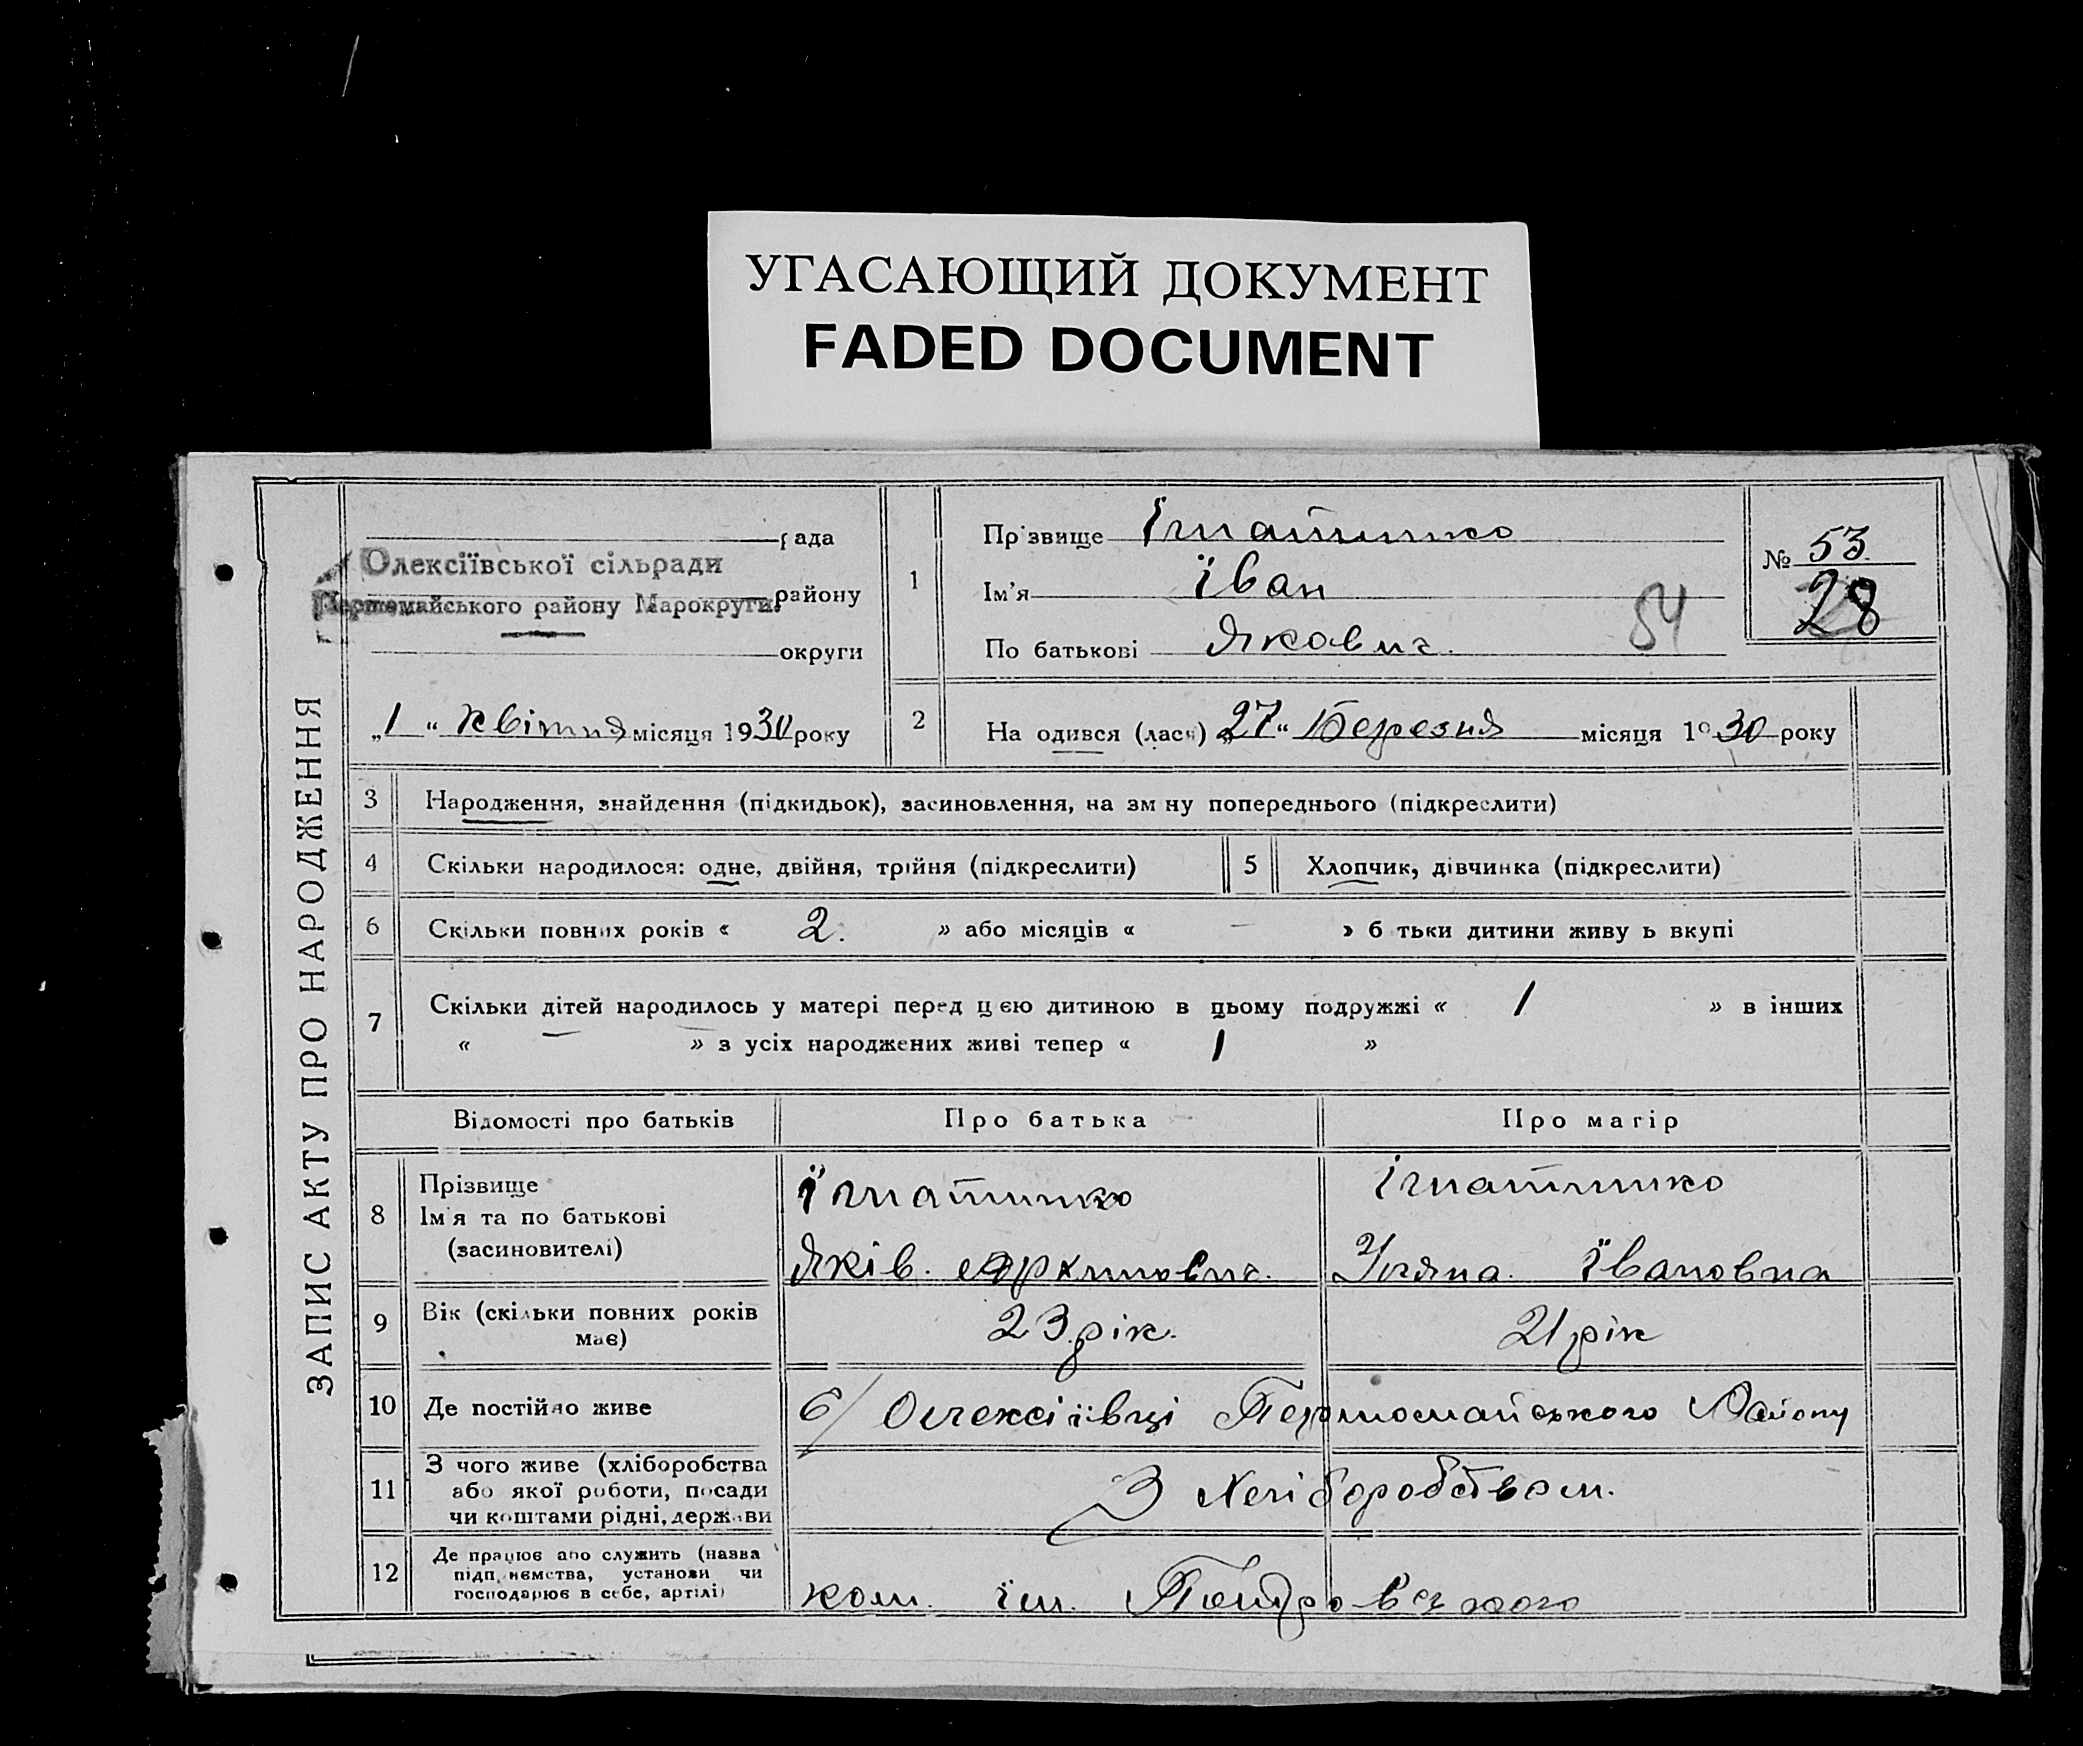 УГАСАЮЩИЙ ДОКУМЕНТ
FADED DOCUMENT
ЗАПИС АКТУ ПРО НАРОДЖЕННЯ
рада
Олексіївської сільради
району
Першомайського району Марокруги
округи
„1“ Квітня місяця 1930 року
1
Прізвище Ігнатинко
Ім'я Їван
По батькові Якович.
54
№ 53.
28
2
На одився (лася) „27“ Березня місяця 1930 року
3 Народження, знайдення (підкидьок), засиновлення, на зм ну попереднього (підкреслити)
4 Скільки народилося: одне, двійня, трійня (підкреслити)
5 Хлопчик, дівчинка (підкреслити)
6 Скільки повних років « 2. » або місяців « — » б тьки дитини живу ь вкупі
7 Скільки дітей народилось у матері перед цією дитиною в цьому подружжі « 1 » в інших
« — » з усіх народжених живі тепер « 1 »
Відомості про батьків Про батька Про матір
8 Прізвище
Ім'я та по батькові
(засиновителі)
Їгнатинко
Яків. Архипович.
Ігнатинко
Уляна. Ївановна
9 Вік (скільки повних років
має)
23 рік.
21 рік
10 Де постійно живе
с/ Олексіївці Першомайського Району
11 З чого живе (хліборобства
або якої роботи, посади
чи коштами рідні, держави
З хліборобством.
12 Де працює або служить (назва
підп, ємства, установи чи
господарює в себе, артілі)
ком. їм.